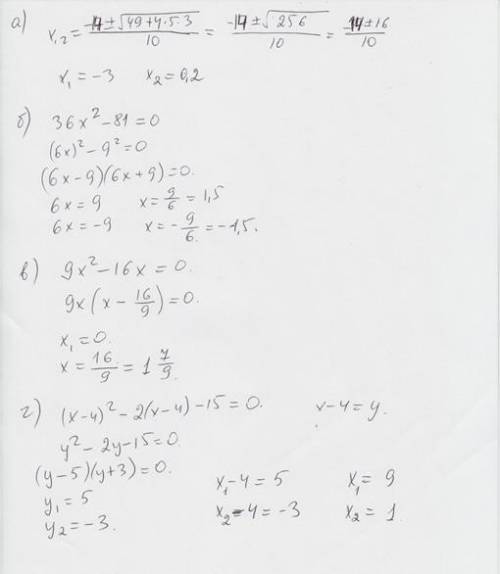 а) x₁,₂ = (-14 ± √(49+4·5·3))/10 = (-14 ± √256)/10 = (-14 ± 16)/10
x₁ = -3 x₂ = 0,2
б) 36x² - 81 = 0
(6x)² - 9² = 0
(6x - 9)(6x + 9) = 0.
6x = 9 x = 9/6 = 1,5
6x = -9 x = -9/6 = -1,5.
в) 9x² - 16x = 0.
9x(x - 16/9) = 0.
x₁ = 0.
x = 16/9 = 1 7/9.
г) (x-4)² - 2(x-4) - 15 = 0. x-4 = y.
y² - 2y - 15 = 0.
(y-5)(y+3) = 0.
y₁ = 5 x₁ - 4 = 5 x₁ = 9
y₂ = -3. x₂ - 4 = -3 x₂ = 1